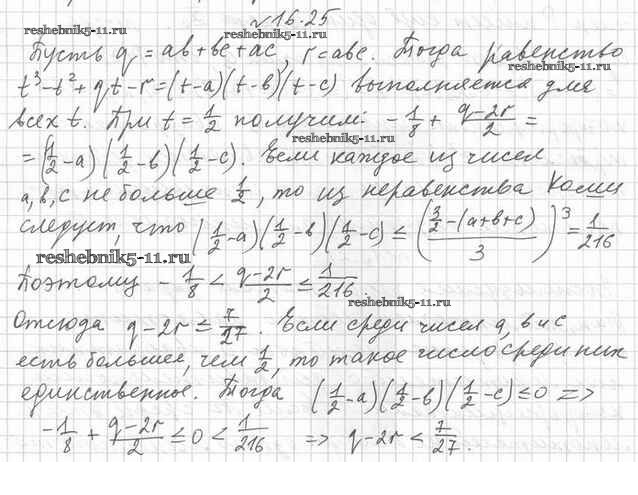 №16.25
reshebnik5-11.ru reshebnik5-11.ru
Пусть q = ab+bc+ac, r=abc. Тогда равенство
reshebnik5-11.ru
t³-t²+qt-r=(t-a)(t-b)(t-c) выполняется для
всех t. При t=1/2 получим: -1/8 + (q-2r)/2 =
reshebnik5-11.ru
=(1/2-a)(1/2-b)(1/2-c). Если каждое из чисел
a, b, c не больше 1/2, то из неравенства Коши
следует, что (1/2-a)(1/2-b)(1/2-c) ≤ ((3/2-(a+b+c))/3)³ = 1/216
reshebnik5-11.ru
Поэтому -1/8 < (q-2r)/2 ≤ 1/216.
reshebnik5-11.ru
Отсюда q-2r ≤ 7/27. Если среди чисел a, b и c
есть большее, чем 1/2, то такое число среди них
единственное. Тогда (1/2-a)(1/2-b)(1/2-c) ≤ 0 =>
-1/8 + (q-2r)/2 ≤ 0 < 1/216 => q-2r < 7/27.